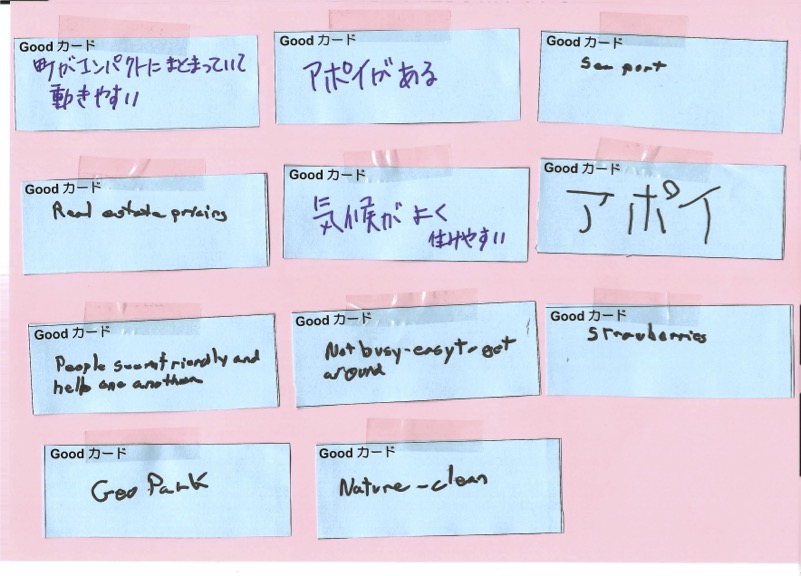 Good カード
町がコンパクトにまとまっていて
動きやすい
Good カード
アポイがある
Good カード
Sea port
Good カード
Real estate pricing
Good カード
気候がよく
住みやすい
Good カード
アポイ
Good カード
People seem friendly and
help one another
Good カード
Not busy-easy to get
around
Good カード
Strawberries
Good カード
Geo Park
Good カード
Nature-clean